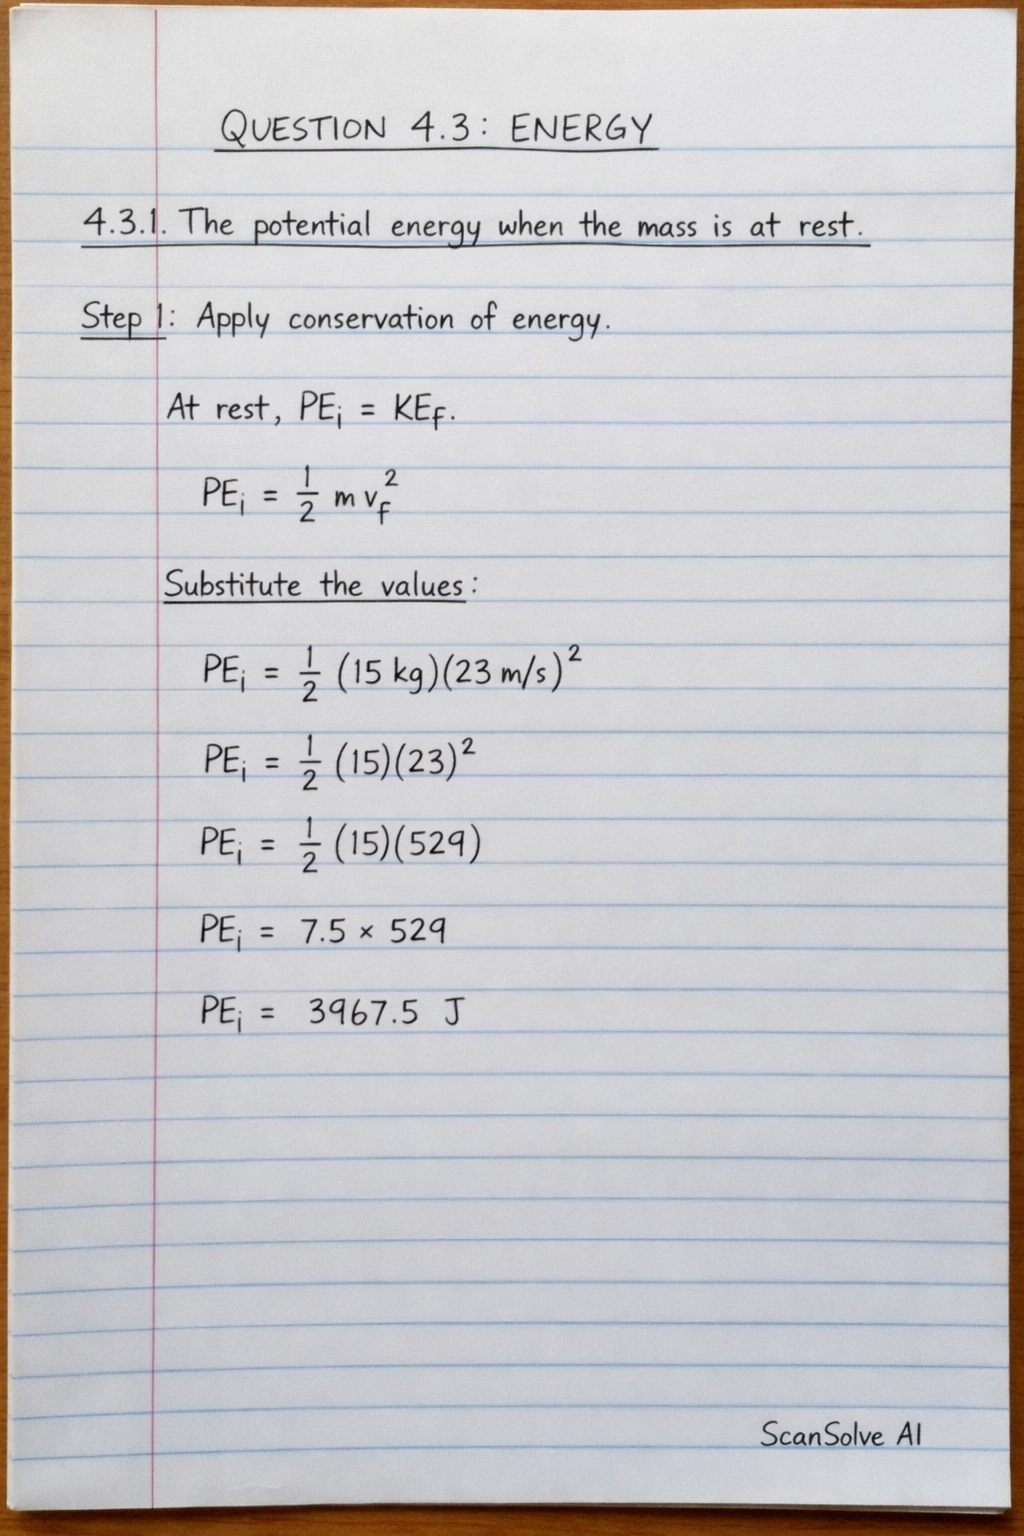 QUESTION 4.3: ENERGY
4.3.1. The potential energy when the mass is at rest.
Step 1: Apply conservation of energy.
At rest, PEᵢ = KE_f.
PEᵢ = 1/2 m v_f²
Substitute the values:
PEᵢ = 1/2 (15 kg)(23 m/s)²
PEᵢ = 1/2 (15)(23)²
PEᵢ = 1/2 (15)(529)
PEᵢ = 7.5 × 529
PEᵢ = 3967.5 J
ScanSolve AI